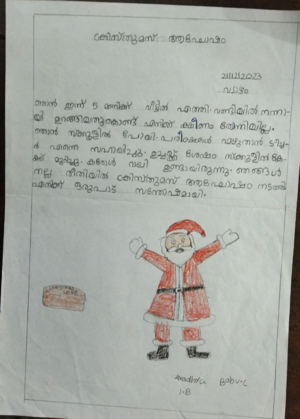 ക്രിസ്തുമസ് ആഘോഷം
21/12/2023
വ്യാഴം
ഞാൻ ഇന്ന് 5 മണിക്ക് വീട്ടിൽ എത്തി. വണ്ടിയിൽ നന്നാ
യി ഉറങ്ങിയതുകൊണ്ട് എനിക്ക് ക്ഷീണം തോന്നിയില്ല.
ഞാൻ സ്കൂളിൽ പോയി. പരീക്ഷകൾ എഴുതാൻ ടീച്ച
ർ എന്നെ സഹായിച്ചു. ഉച്ചയ്ക്ക് ശേഷം സ്കൂളിൽ കേ
ക്ക് മുറിച്ചു. കരോൾ റാലി ഉണ്ടായിരുന്നു. ഞങ്ങൾ
നല്ല രീതിയിൽ ക്രിസ്തുമസ് ആഘോഷം നടത്തി
എനിക്ക് ഒരുപാട് സന്തോഷമായി.
Babu.L
1-B